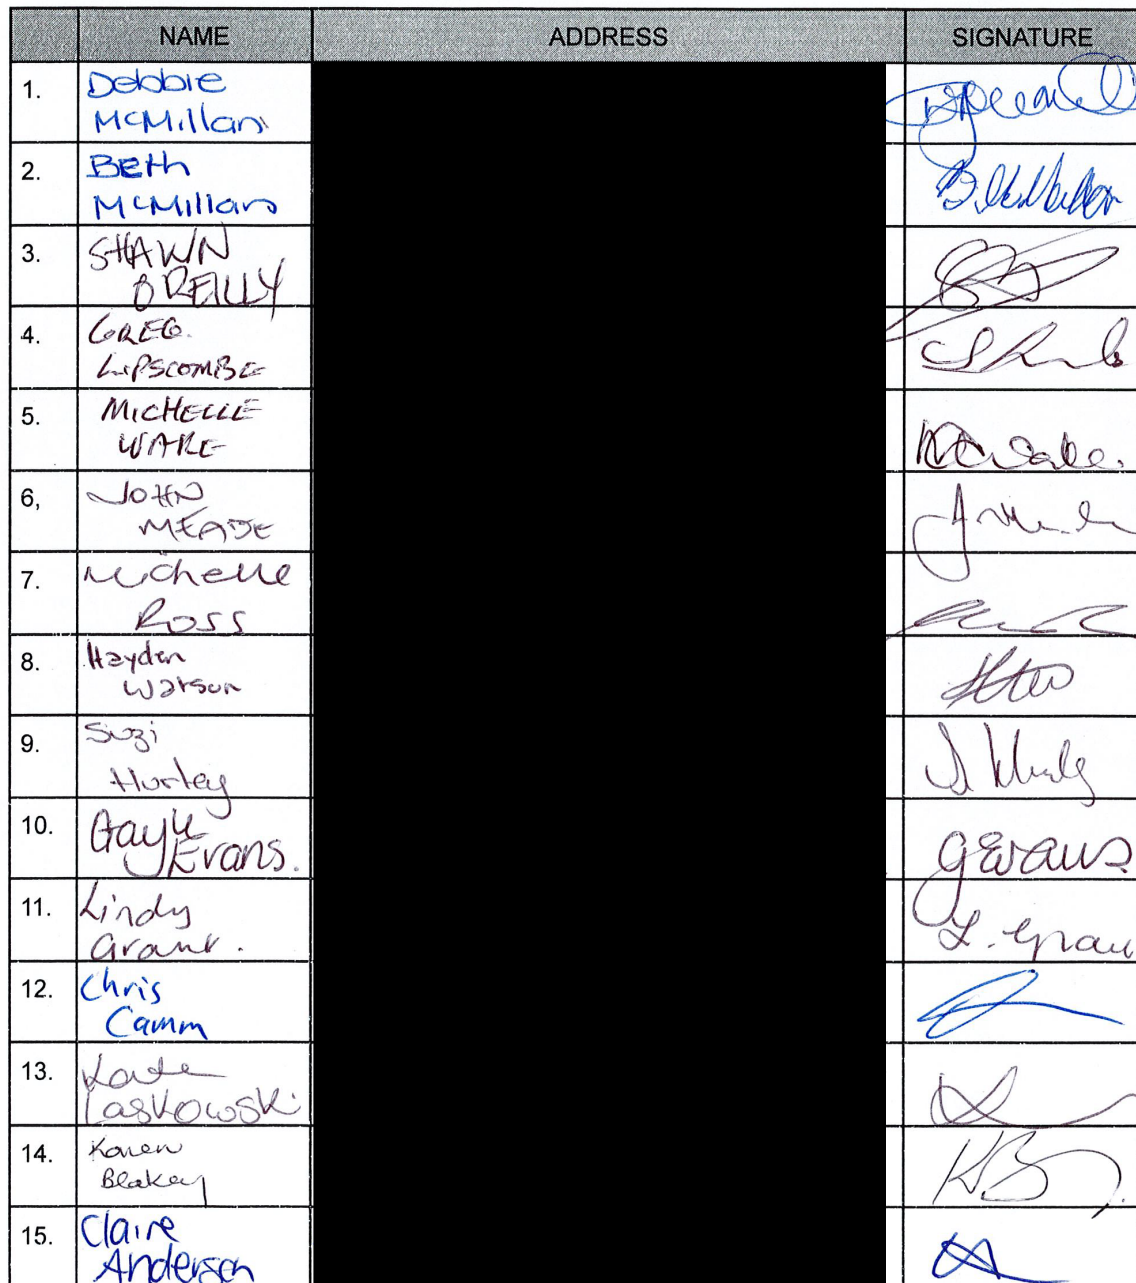 NAME ADDRESS SIGNATURE
1. Debbie
McMillan
2. Beth
McMillan
B. McMillan
3. SHAWN
O'REILLY
4. GREG
LIPSCOMBE
5. MICHELLE
WARE
6, JOHN
MEADE
7. Michelle
Ross
8. Hayden
Watson
9. Suzi
Hurley
10. Gayle
Evans.
GEvans
11. Lindy
Grant.
L. Gran
12. Chris
Camm
13. Kate
Laskowski
14. Karen
Blakey
15. Claire
Andersen